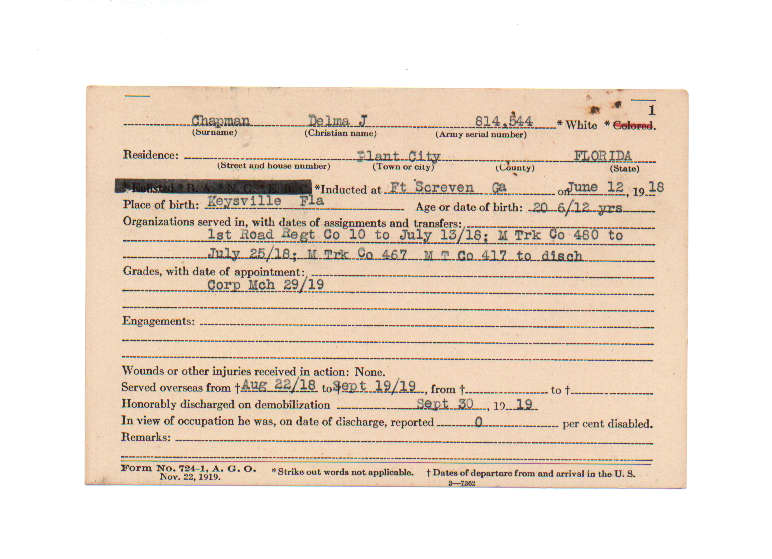 1
Chapman Delma J 814,544 * White * Colored.
(Surname) (Christian name) (Army serial number)
Residence: Plant City FLORIDA
(Street and house number) (Town or city) (County) (State)
*Inducted at Ft Screven Ga on June 12, 1918
Place of birth: Keysville Fla Age or date of birth: 20 6/12 yrs
Organizations served in, with dates of assignments and transfers:
1st Road Regt Co 10 to July 13/18; M Trk Co 480 to
July 25/18; M Trk Co 467 M T Co 417 to disch
Grades, with date of appointment:
Corp Mch 29/19
Engagements:
Wounds or other injuries received in action: None.
Served overseas from † Aug 22/18 to † Sept 19/19, from † to †
Honorably discharged on demobilization Sept 30, 1919
In view of occupation he was, on date of discharge, reported 0 per cent disabled.
Remarks:
Form No. 724-1, A. G. O. * Strike out words not applicable. † Dates of departure from and arrival in the U. S.
Nov. 22, 1919. 3—7362